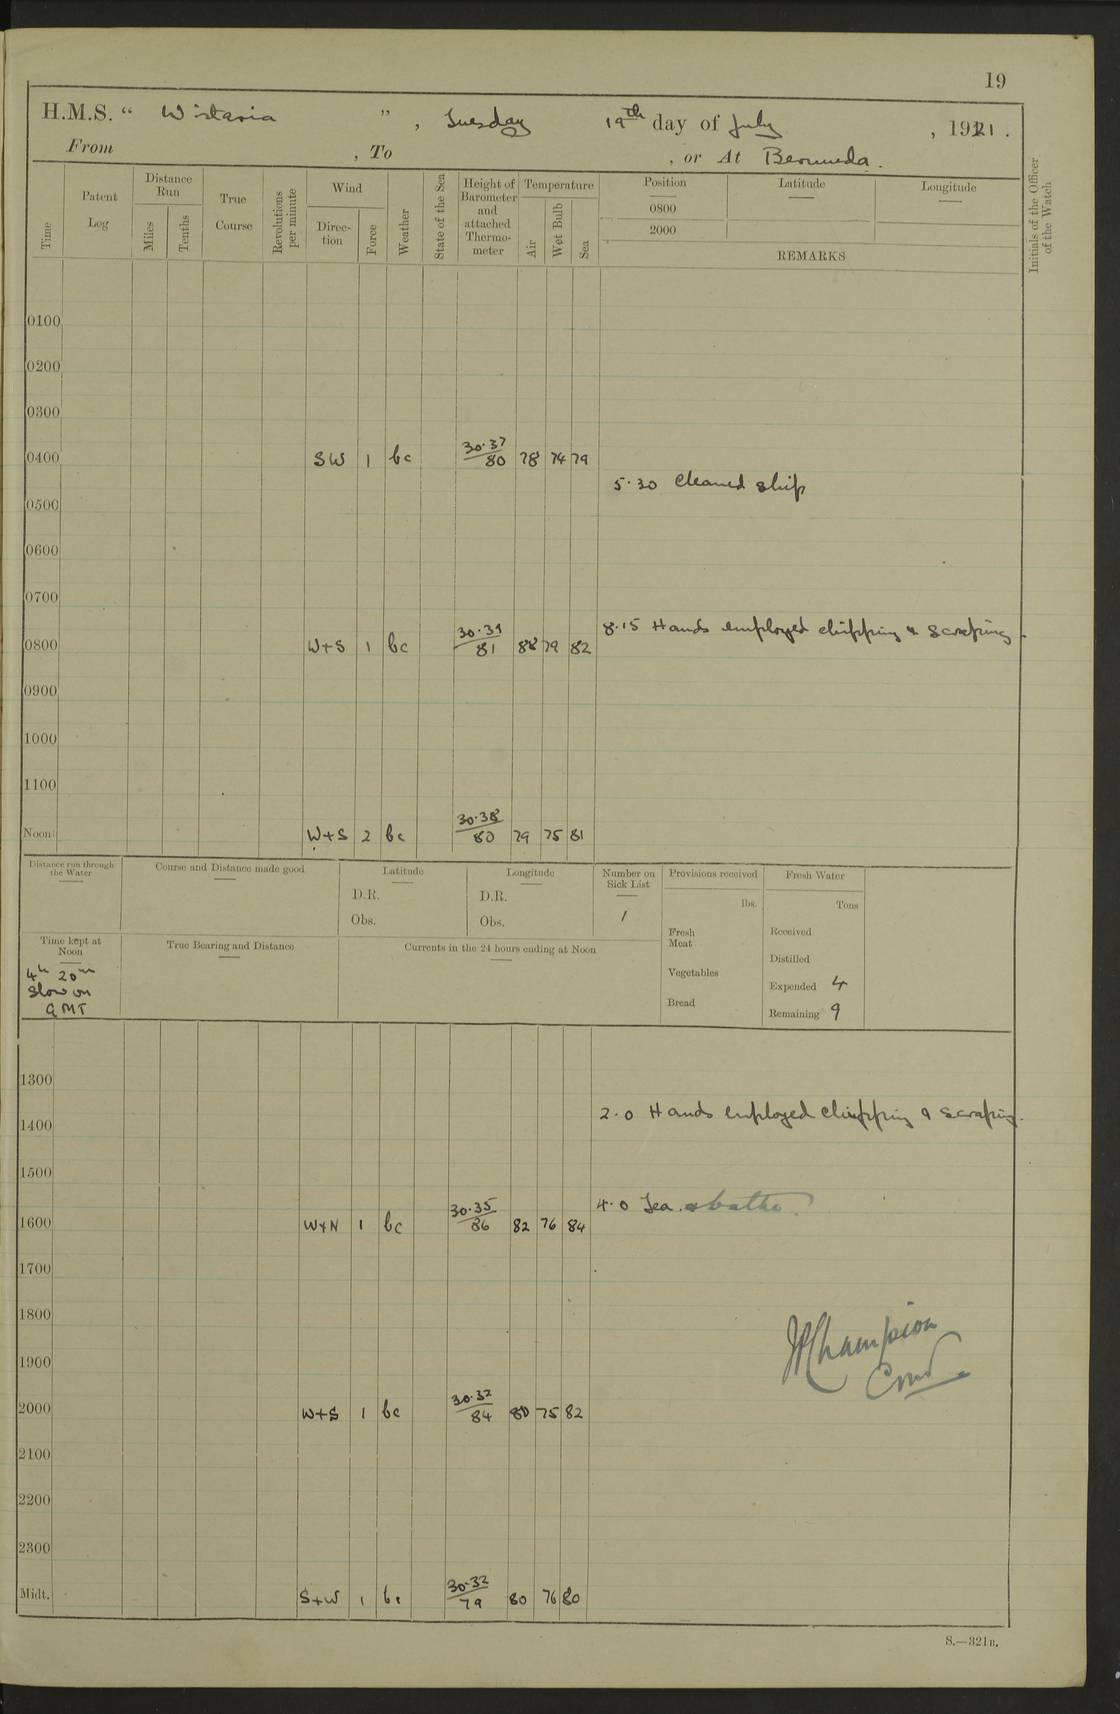 19
H.M.S. " Wistaria ", Tuesday 19th day of July, 1921.
From , To , or At Bermuda.
Time
Patent Log
Distance Run
Miles
Tenths
True Course
Revolutions per minute
Wind
Direc-tion
Force
Weather
State of the Sea
Height of Barometer and attached Thermo-meter
Temperature
Air
Wet Bulb
Sea
Position
0800
2000
Latitude
Longitude
REMARKS
Initials of the Officer of the Watch
0100
0200
0300
0400 SW 1 bc 30.37/80 78 74 79
5.30 Cleaned ship
0500
0600
0700
8.15 Hands employed chipping & scraping.
0800 W+S 1 bc 30.39/81 88 79 82
0900
1000
1100
Noon W+S 2 bc 30.38/80 79 75 81
Distance run through the Water
Course and Distance made good
Latitude
D.R.
Obs.
Longitude
D.R.
Obs.
Number on Sick List
1
Provisions received
lbs.
Fresh Meat
Vegetables
Bread
Fresh Water
Tons
Received
Distilled
Expended 4
Remaining 9
Time kept at Noon
4h 20m
Slow on
GMT
True Bearing and Distance
Currents in the 24 hours ending at Noon
1300
2.0 Hands employed chipping & scraping.
1400
1500
4.0 Tea. & bathe.
1600 W+N 1 bc 30.35/86 82 76 84
1700
1800
1900
Champion
Comr
2000 W+S 1 bc 30.32/84 80 75 82
2100
2200
2300
Midt. S+W 1 bc 30.32/79 80 76 80
S.—321B.